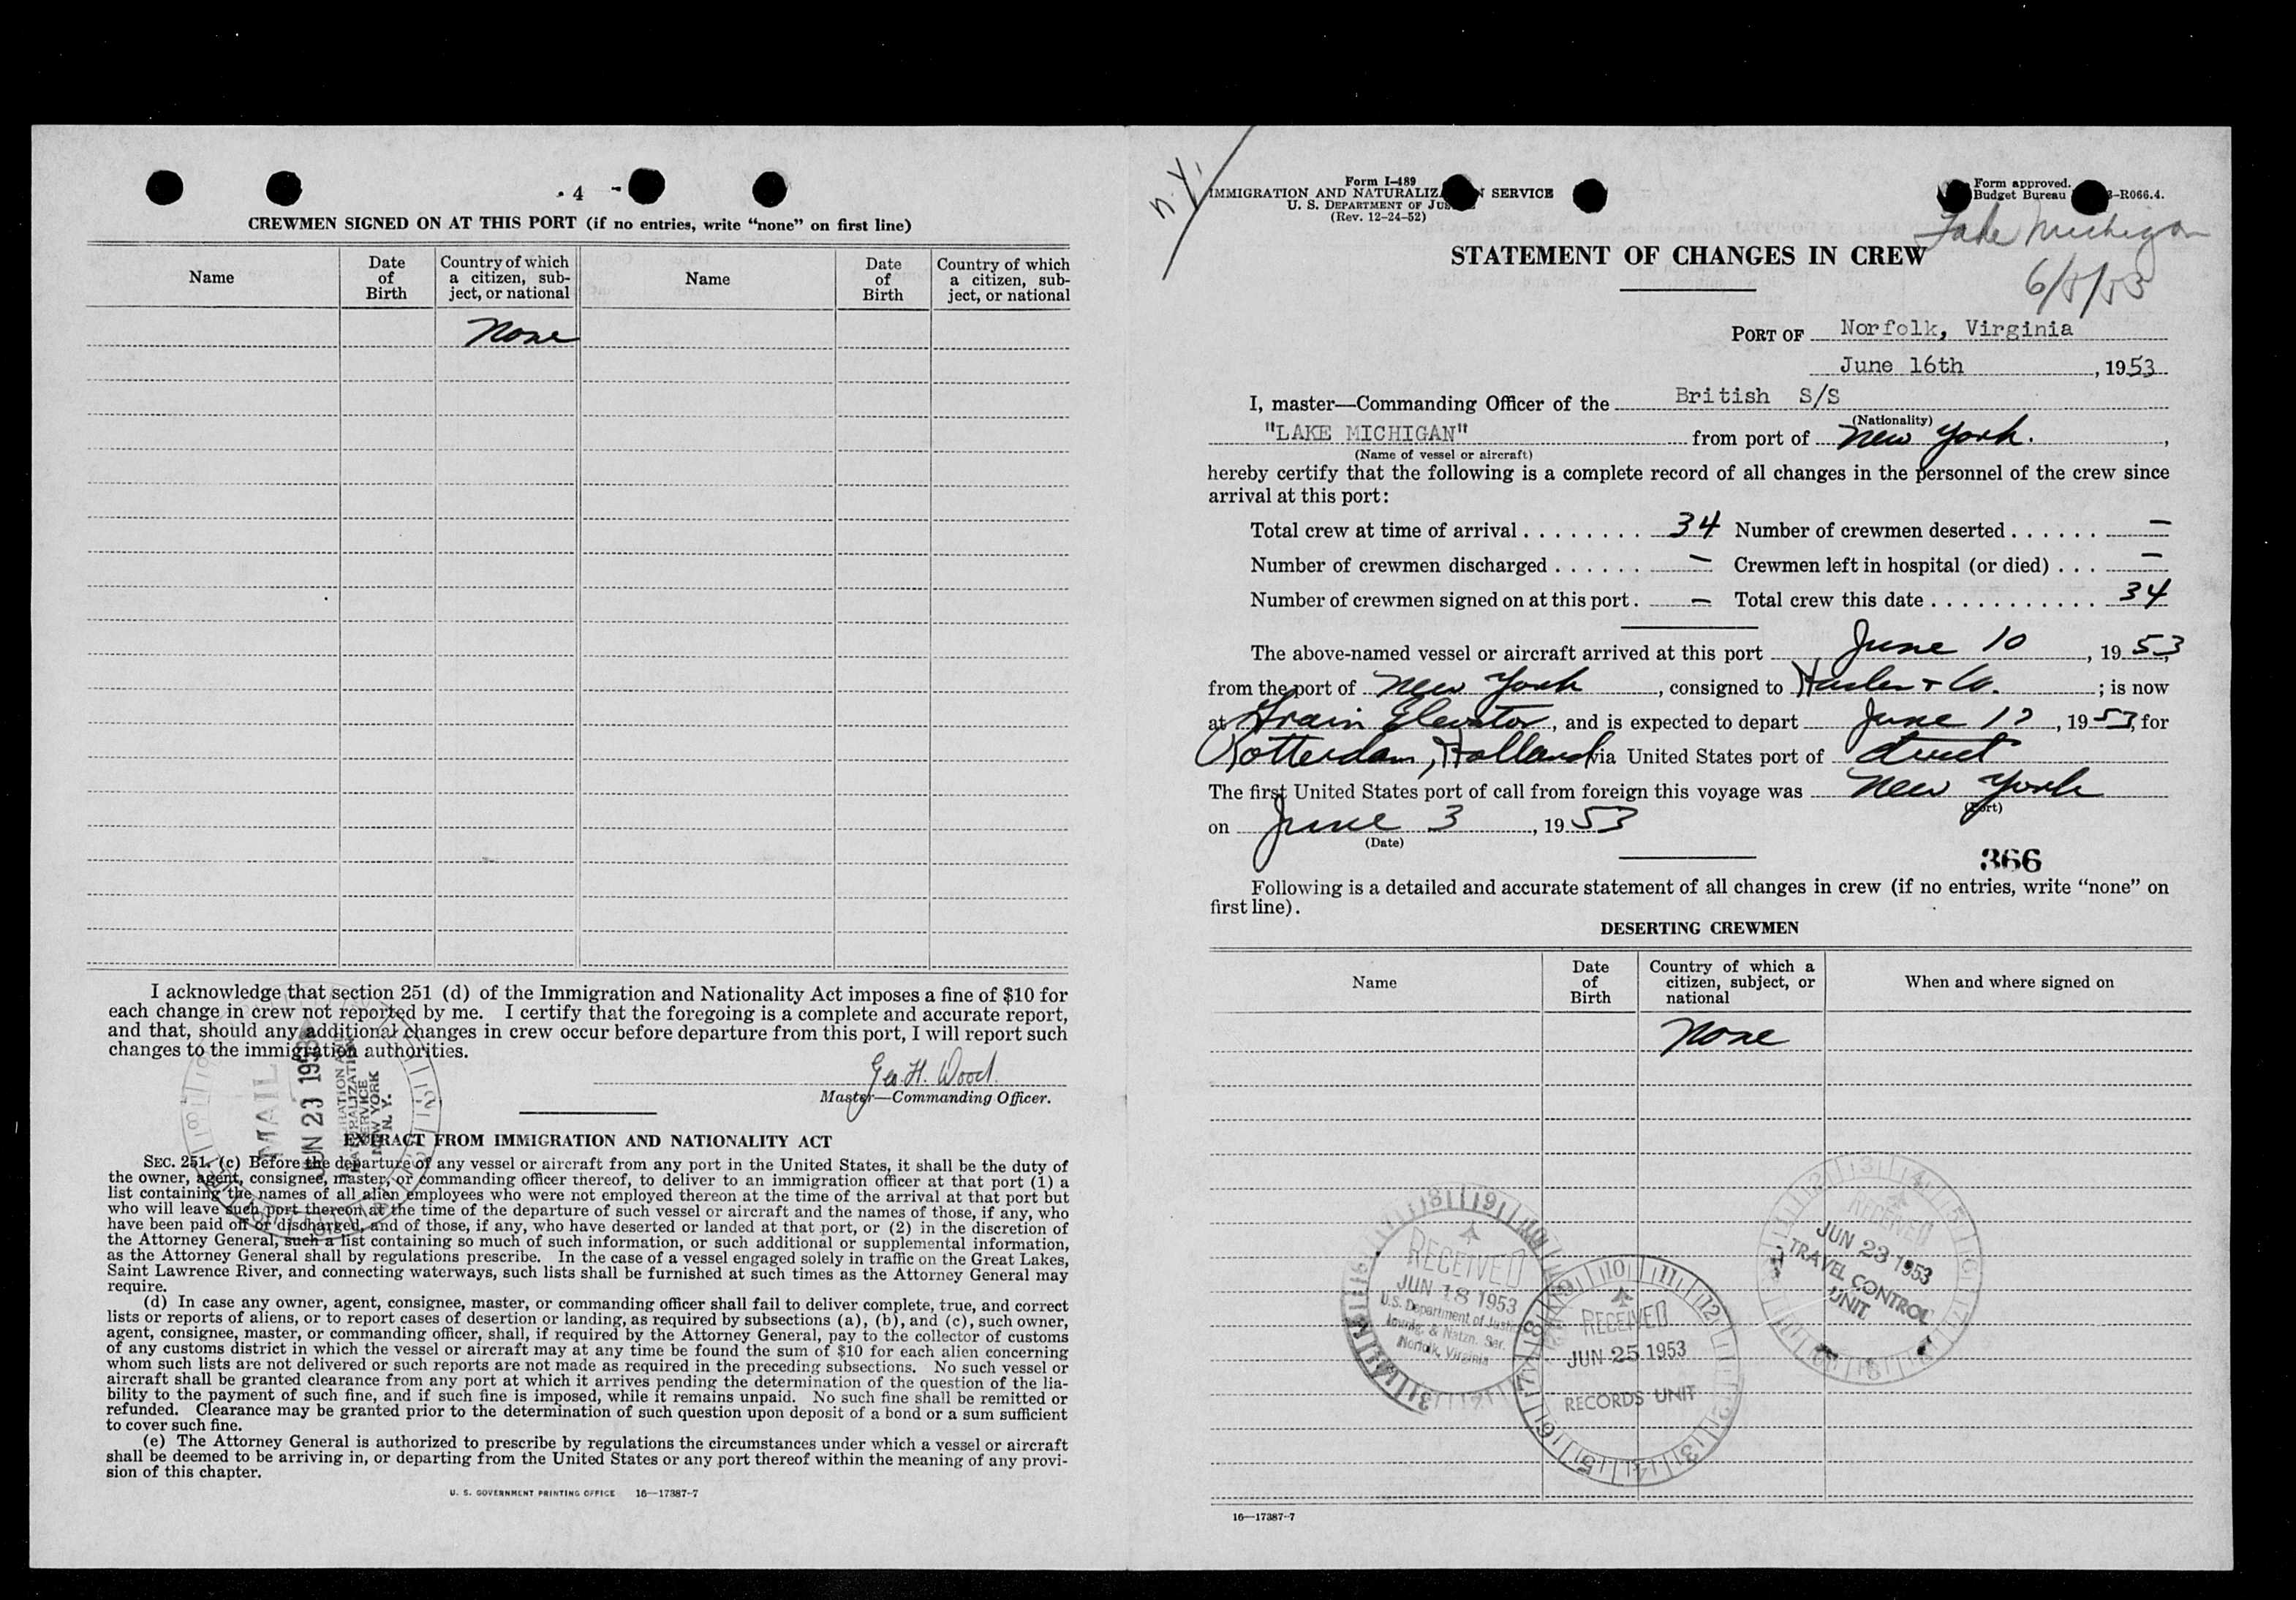 - 4 -
CREWMEN SIGNED ON AT THIS PORT (if no entries, write "none" on first line)
Name
Date of Birth
Country of which a citizen, subject, or national
Name
Date of Birth
Country of which a citizen, subject, or national
None
I acknowledge that section 251 (d) of the Immigration and Nationality Act imposes a fine of $10 for
each change in crew not reported by me. I certify that the foregoing is a complete and accurate report,
and that, should any additional changes in crew occur before departure from this port, I will report such
changes to the immigration authorities.
Geo. H. Wood.
Master—Commanding Officer.
MAIL
JUN 23 1953
IMMIGRATION AND
NATURALIZATION
SERVICE
NEW YORK
N. Y.
EXTRACT FROM IMMIGRATION AND NATIONALITY ACT
SEC. 251. (c) Before the departure of any vessel or aircraft from any port in the United States, it shall be the duty of
the owner, agent, consignee, master, or commanding officer thereof, to deliver to an immigration officer at that port (1) a
list containing the names of all alien employees who were not employed thereon at the time of the arrival at that port but
who will leave such port thereon at the time of the departure of such vessel or aircraft and the names of those, if any, who
have been paid off or discharged, and of those, if any, who have deserted or landed at that port, or (2) in the discretion of
the Attorney General, such a list containing so much of such information, or such additional or supplemental information,
as the Attorney General shall by regulations prescribe. In the case of a vessel engaged solely in traffic on the Great Lakes,
Saint Lawrence River, and connecting waterways, such lists shall be furnished at such times as the Attorney General may
require.
(d) In case any owner, agent, consignee, master, or commanding officer shall fail to deliver complete, true, and correct
lists or reports of aliens, or to report cases of desertion or landing, as required by subsections (a), (b), and (c), such owner,
agent, consignee, master, or commanding officer, shall, if required by the Attorney General, pay to the collector of customs
of any customs district in which the vessel or aircraft may at any time be found the sum of $10 for each alien concerning
whom such lists are not delivered or such reports are not made as required in the preceding subsections. No such vessel or
aircraft shall be granted clearance from any port at which it arrives pending the determination of the question of the lia-
bility to the payment of such fine, and if such fine is imposed, while it remains unpaid. No such fine shall be remitted or
refunded. Clearance may be granted prior to the determination of such question upon deposit of a bond or a sum sufficient
to cover such fine.
(e) The Attorney General is authorized to prescribe by regulations the circumstances under which a vessel or aircraft
shall be deemed to be arriving in, or departing from the United States or any port thereof within the meaning of any provi-
sion of this chapter.
U. S. GOVERNMENT PRINTING OFFICE 16—17387-7
N.Y.
Form I-489
IMMIGRATION AND NATURALIZATION SERVICE
U. S. DEPARTMENT OF JUSTICE
(Rev. 12-24-52)
Form approved.
Budget Bureau -R066.4.
Lake Michigan
6/5/53
STATEMENT OF CHANGES IN CREW
PORT OF Norfolk, Virginia
June 16th, 1953
I, master—Commanding Officer of the British S/S
(Nationality)
"LAKE MICHIGAN" from port of New York.,
(Name of vessel or aircraft)
hereby certify that the following is a complete record of all changes in the personnel of the crew since
arrival at this port:
Total crew at time of arrival ........ 34 Number of crewmen deserted ...... —
Number of crewmen discharged ...... — Crewmen left in hospital (or died) ... —
Number of crewmen signed on at this port. — Total crew this date ........... 34
The above-named vessel or aircraft arrived at this port June 10, 1953,
from the port of New York, consigned to & Co.; is now
at Grain Elevator, and is expected to depart June, 1953, for
Rotterdam, Holland via United States port of direct
The first United States port of call from foreign this voyage was New York
(Port)
on June 3, 1953
(Date)
366
Following is a detailed and accurate statement of all changes in crew (if no entries, write "none" on
first line).
DESERTING CREWMEN
Name
Date of Birth
Country of which a citizen, subject, or national
When and where signed on
None
RECEIVED
JUN 18 1953
U.S. Department of Justice
Immig. & Natzn. Ser.
Norfolk, Virginia
RECEIVED
JUN 25 1953
RECORDS UNIT
RECEIVED
JUN 23 1953
TRAVEL CONTROL
UNIT
16—17387-7